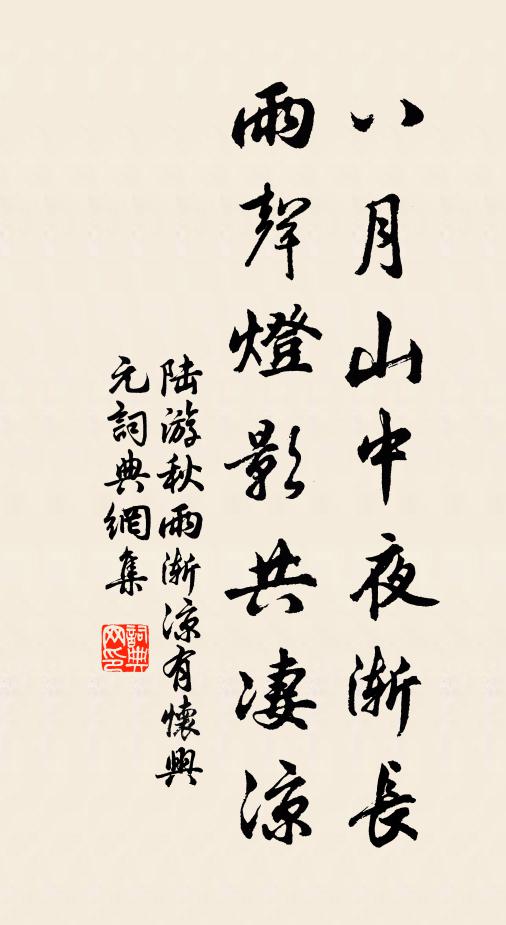 八月山中夜漸長
雨聲燈影共凄涼
陆游秋雨漸涼有懷興
元詞典網集
詞典
网印